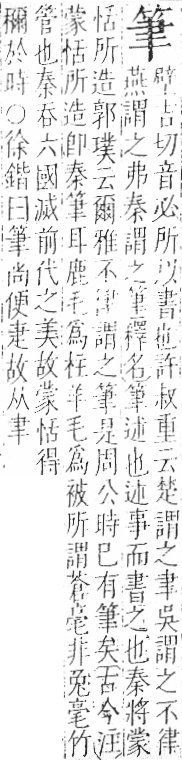 筆
壁吉切音必所以書也許叔重云楚謂之聿吳謂之不律
燕謂之弗秦謂之筆釋名筆述也述事而書之也秦將蒙
恬所造郭璞云爾雅不律謂之筆是周公時已有筆矣古今注
蒙恬所造卽秦筆耳鹿毛為柱羊毛為被所謂蒼毫非兔毫竹
管也秦吞六國滅前代之美故蒙恬得
稱於時○徐鍇曰筆尚便疌故从聿